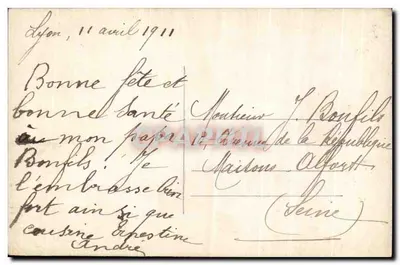 Lyon, 11 avril 1911
Bonne fête et
bonne santé
à mon papa
Bonfils. Je
l'embrasse bien
fort ainsi que
cousine Ernestine
André
Monsieur J. Bonfils
12 Avenue de la République
Maisons Alfort
(Seine)